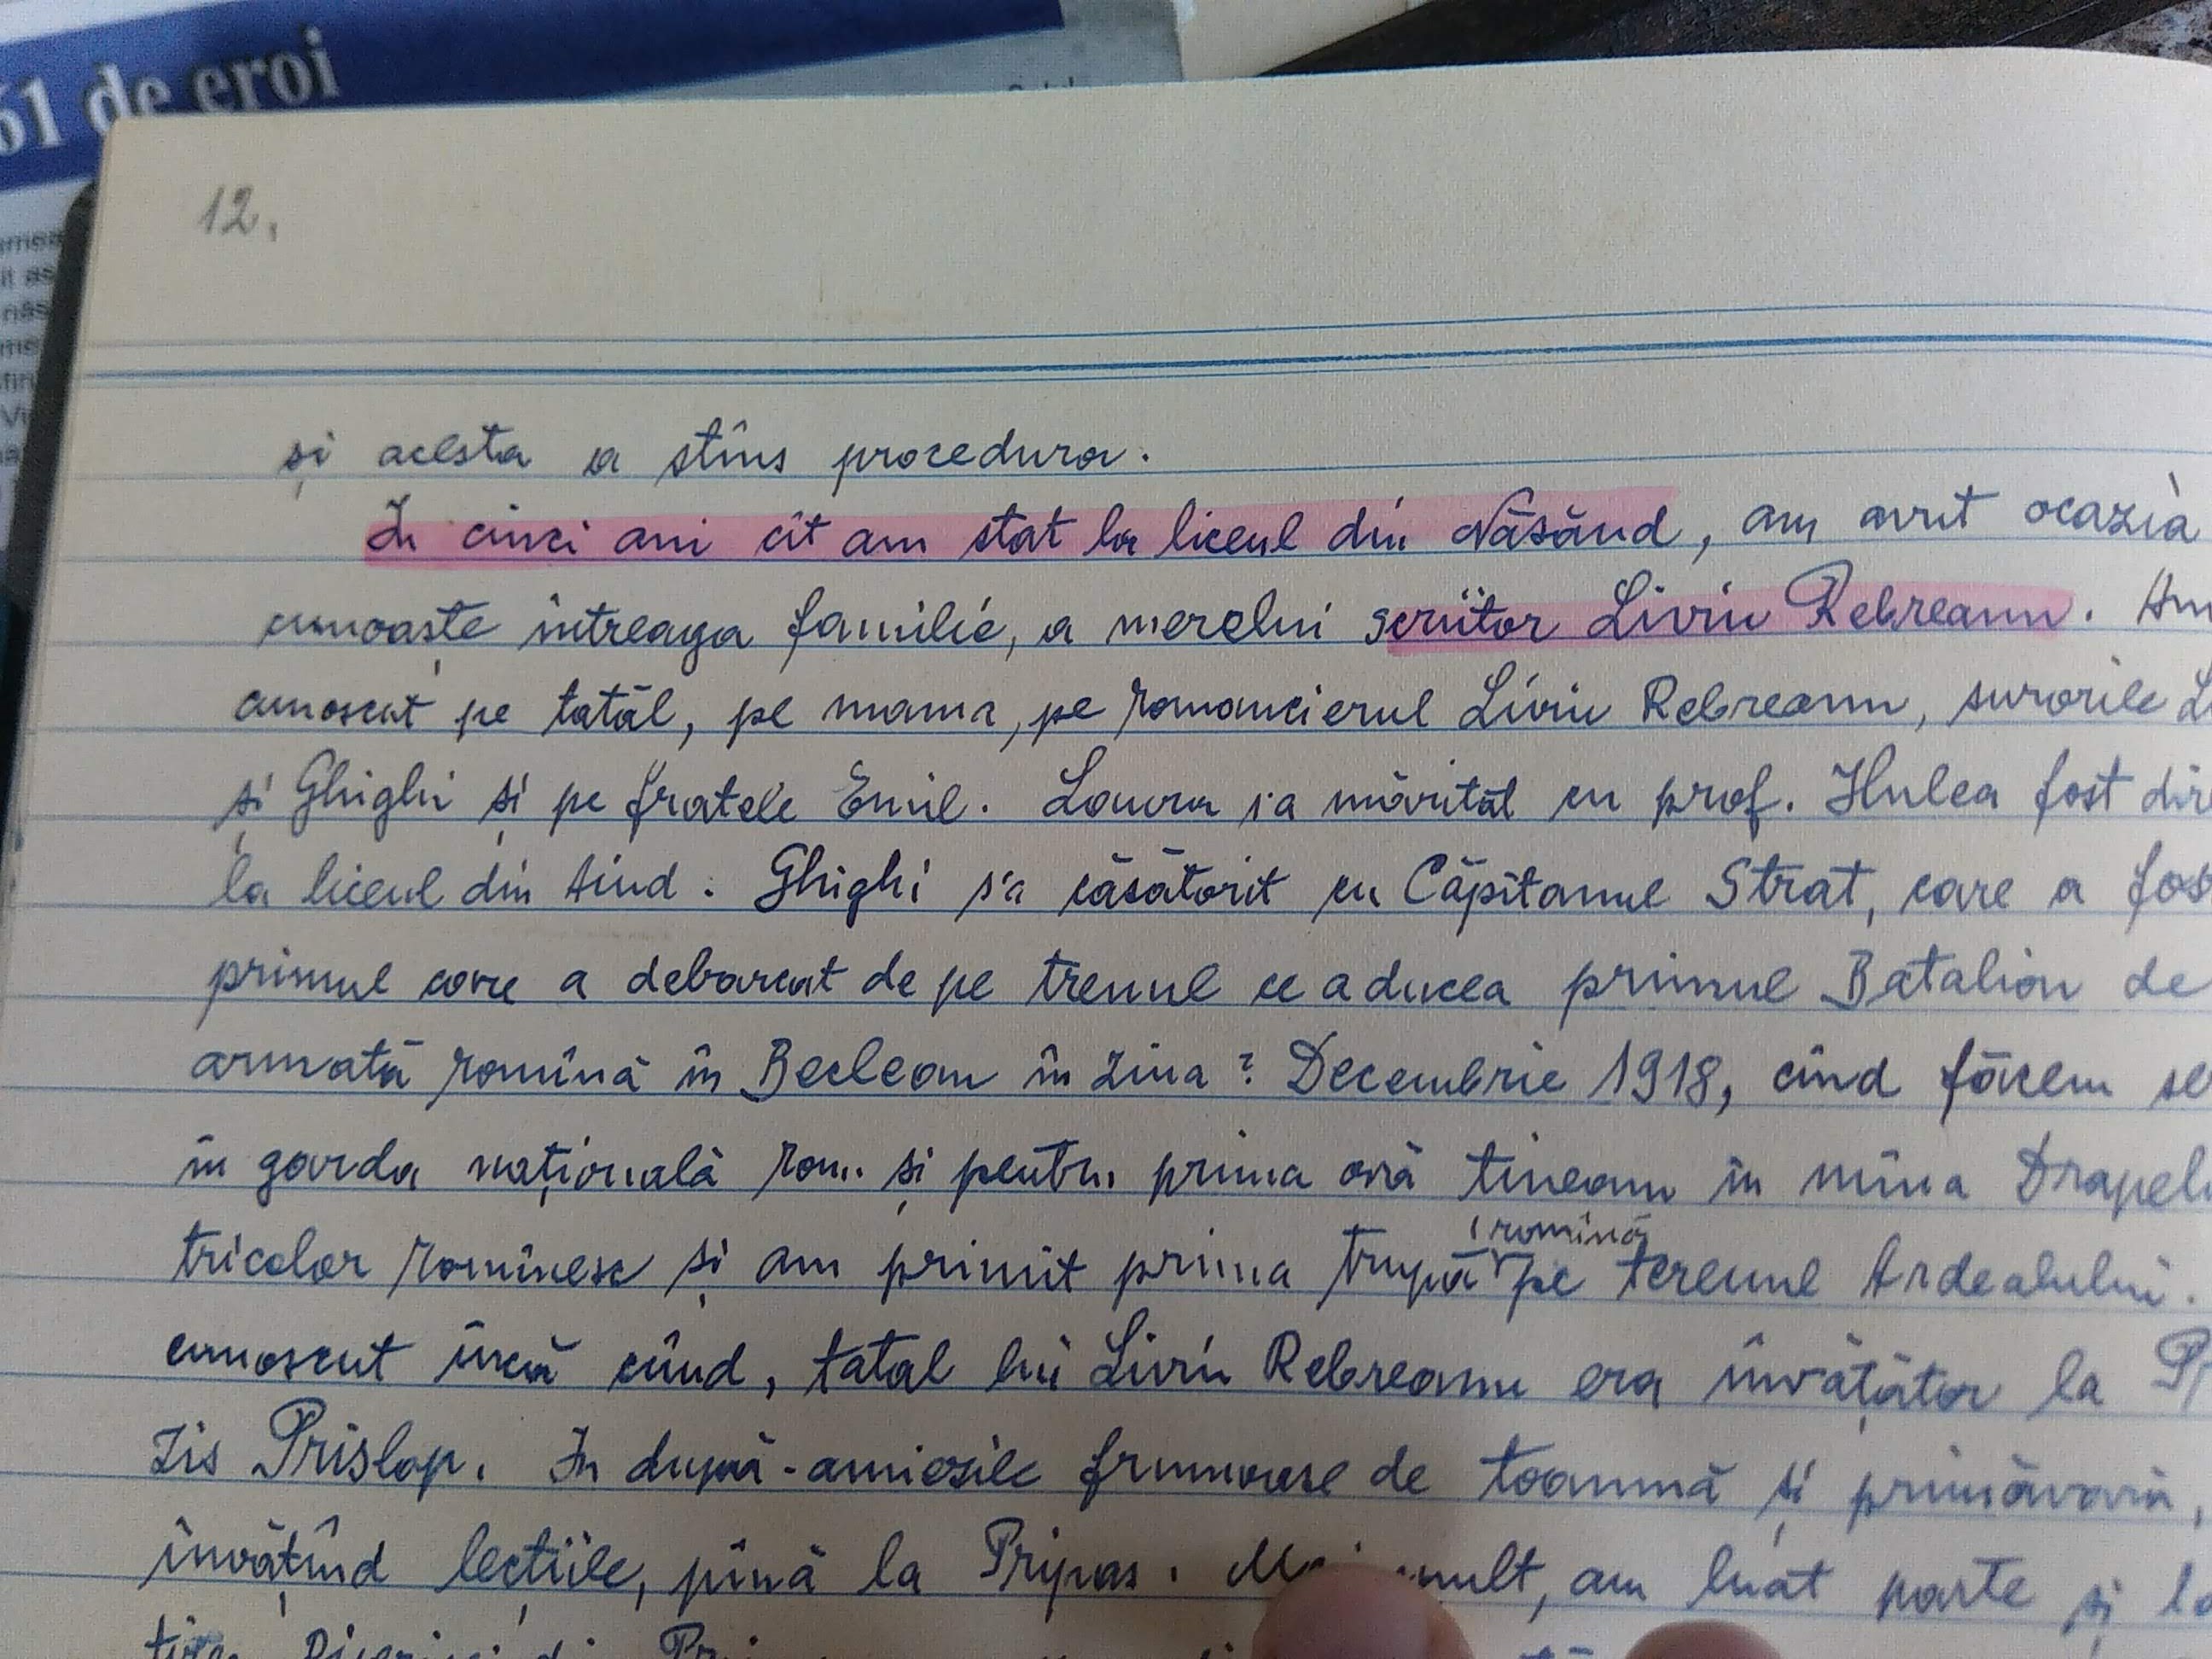 61 de eroi
12.
și acesta a stîns procedura.
In cinci ani cît am stat la liceul din Năsăud, am avut ocazia
cunoaște întreaga familie, a merelui scriitor Liviu Rebreanu. Am
cunoscut pe tatăl, pe mama, pe romancierul Liviu Rebreanu, surorile
și Ghighi și pe fratele Emil. Louvra s'a măritat cu prof. Hulea fost dir
la liceul din Aiud. Ghighi s'a căsătorit cu Căpitanul Strat, care a fos
primul care a debarcat de pe trenul ce aducea primul Batalion de
armată romînă în Beclean în ziua ? Decembrie 1918, cînd făcem se
în garda națională rom. și pentru prima oră tineam în mîna Drapel
tricolor romînesc și am primit prima trupă romînă pe terenul Ardealului.
cunoscut încă cînd, tatal lui Liviu Rebreanu era învățător la P
zis Prislop. In după-amiezile frumoase de toamnă și primăvară,
învățînd lecțiile, pînă la Pripas. mult, am luat parte și la